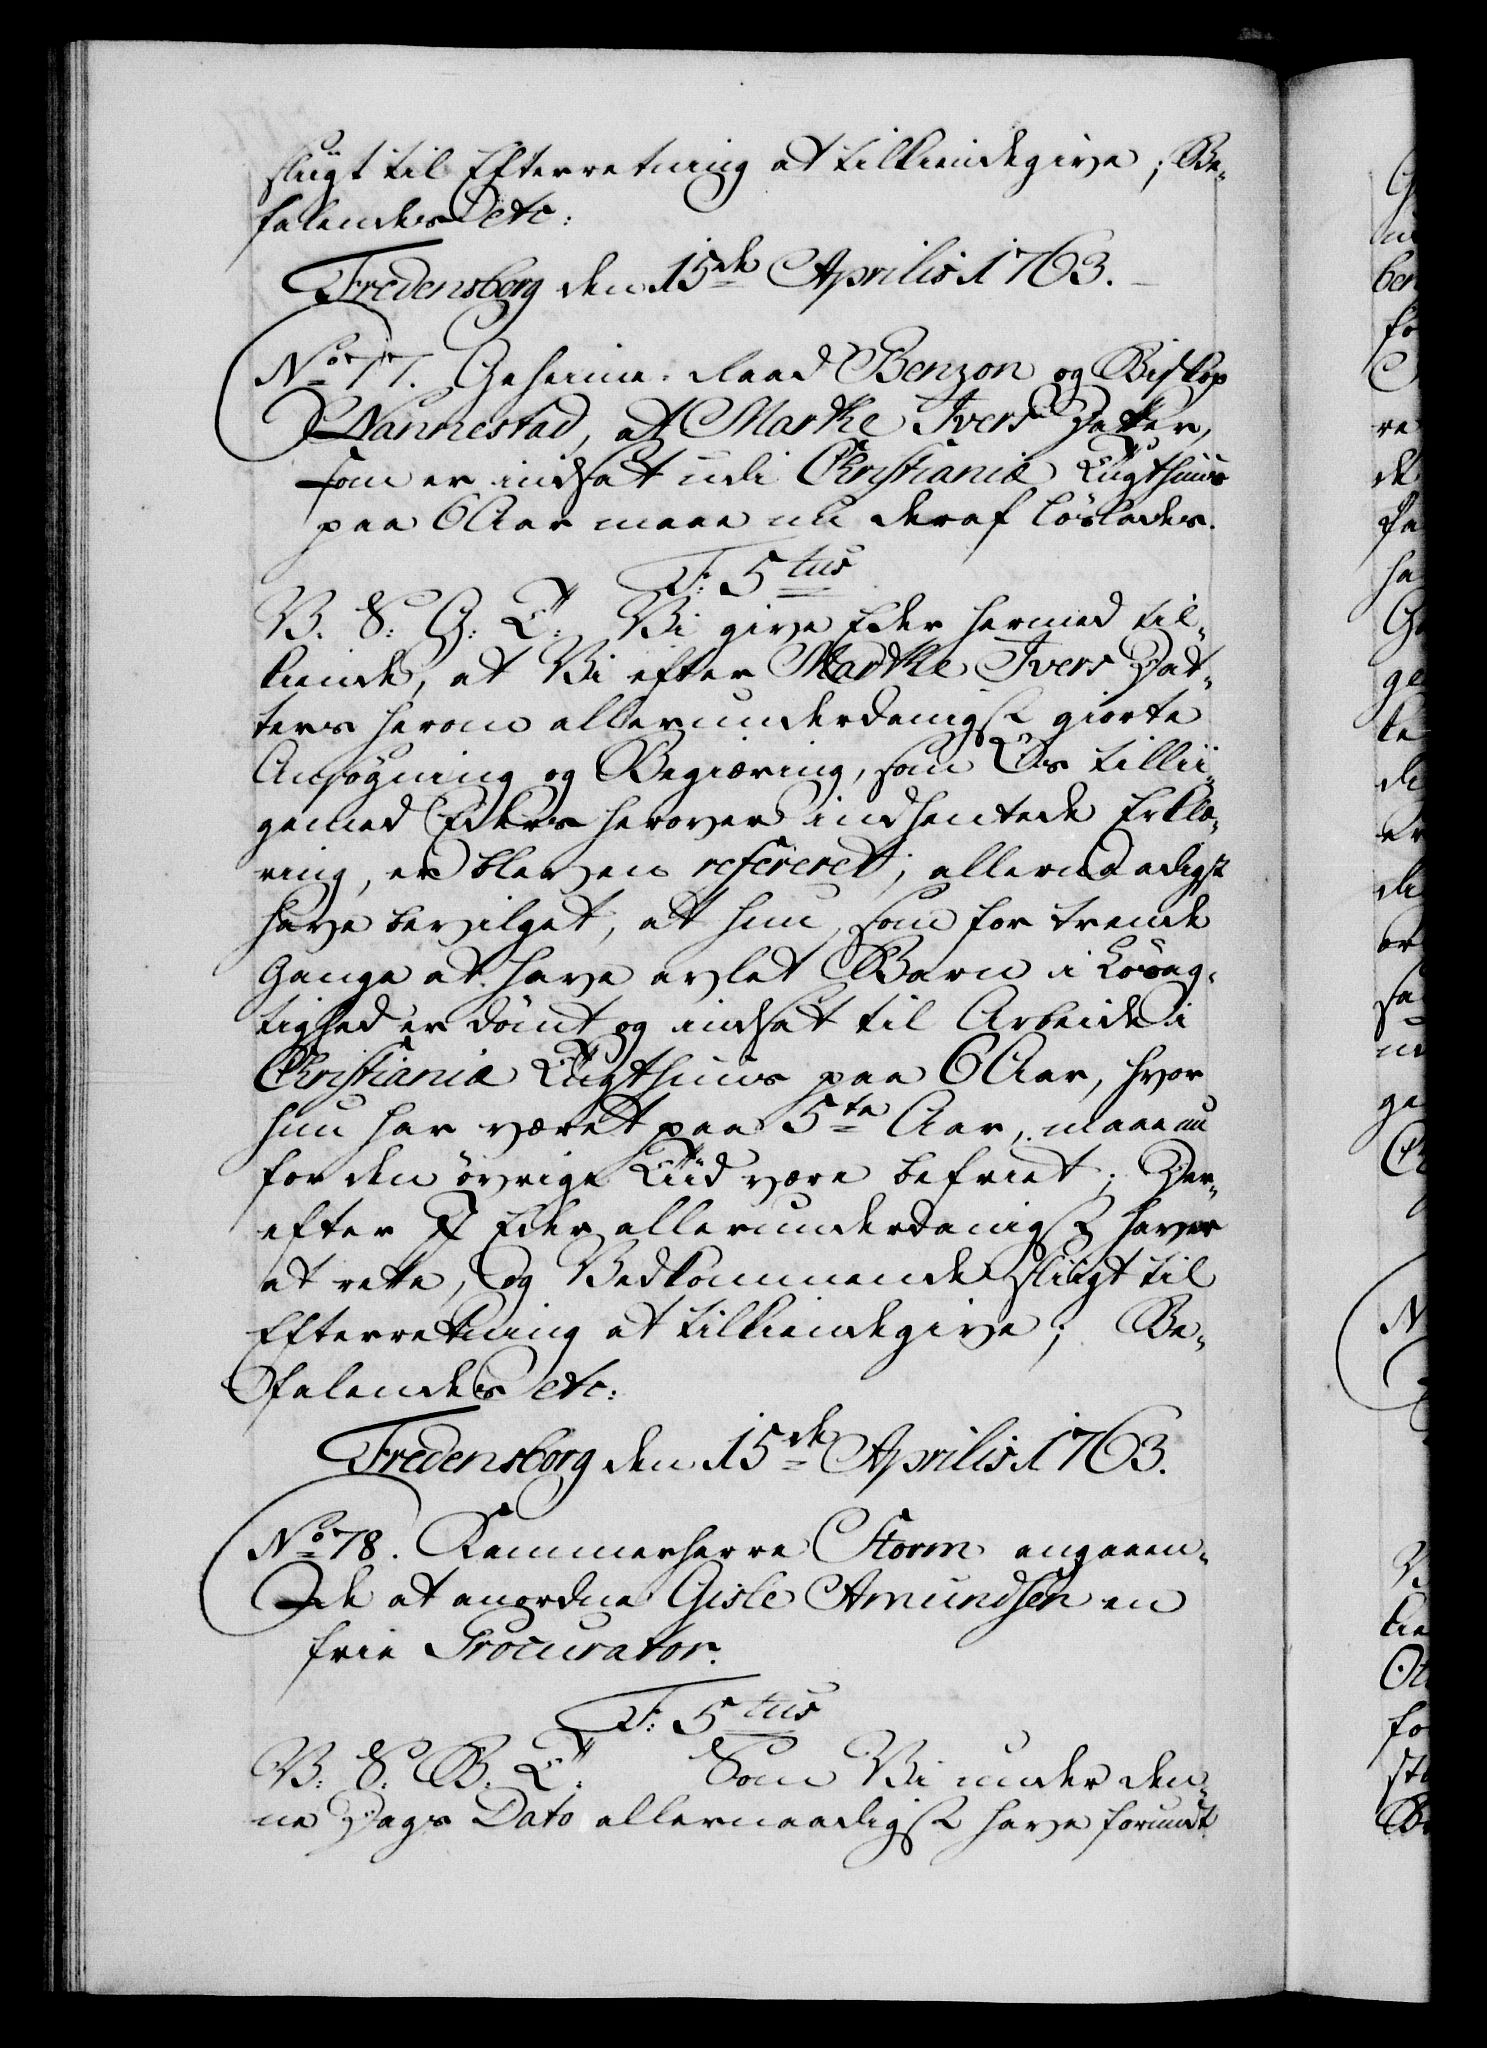 sligt til Efterretning at tilkiendegive; Be-
falendes etc:
Fredensborg den 15de Aprilis 1763.
No 77. Geheime-Raad Benzon og Biskop
Nannestad, at Marthe Ivers Datter,
som er indsat udi Christiania Tugthuus
paa 6 Aar maae nu deraf løslades.
F: 5tus
V. S: G: T: Vi give Eder hermed til-
kiende, at Vi efter Marthe Ivers Dat-
ters herom allerunderdanigst giorte
Ansøgning og Begiæring, som Os tillii-
gemed Eders herover indhentede Erklæ-
ring, er bleven refereret; allernaadigst
have bevilget, at hun, som for trende
Gange at have avlet Barn i Løsag-
tighed er dømt og indsat til Arbeide i
Christiania Tugthuus paa 6 Aar, hvor
hun har været paa 5te Aar, maae nu
for den øvrige Tiid være befriet; Der-
efter I Eder allerunderdanigst haver
at rette, og Vedkommende sligt til
Efterretning at tilkiendegive; Be-
falendes etc:
Fredensborg den 15de Aprilis 1763.
No 78. Kammerherre Storm angaaen-
de at anordne Gisle Amundsen en
frie Procurator.
F: 5tus
V: S: B. T: Som Vi under den-
ne Dags Dato allernaadigst have forundt